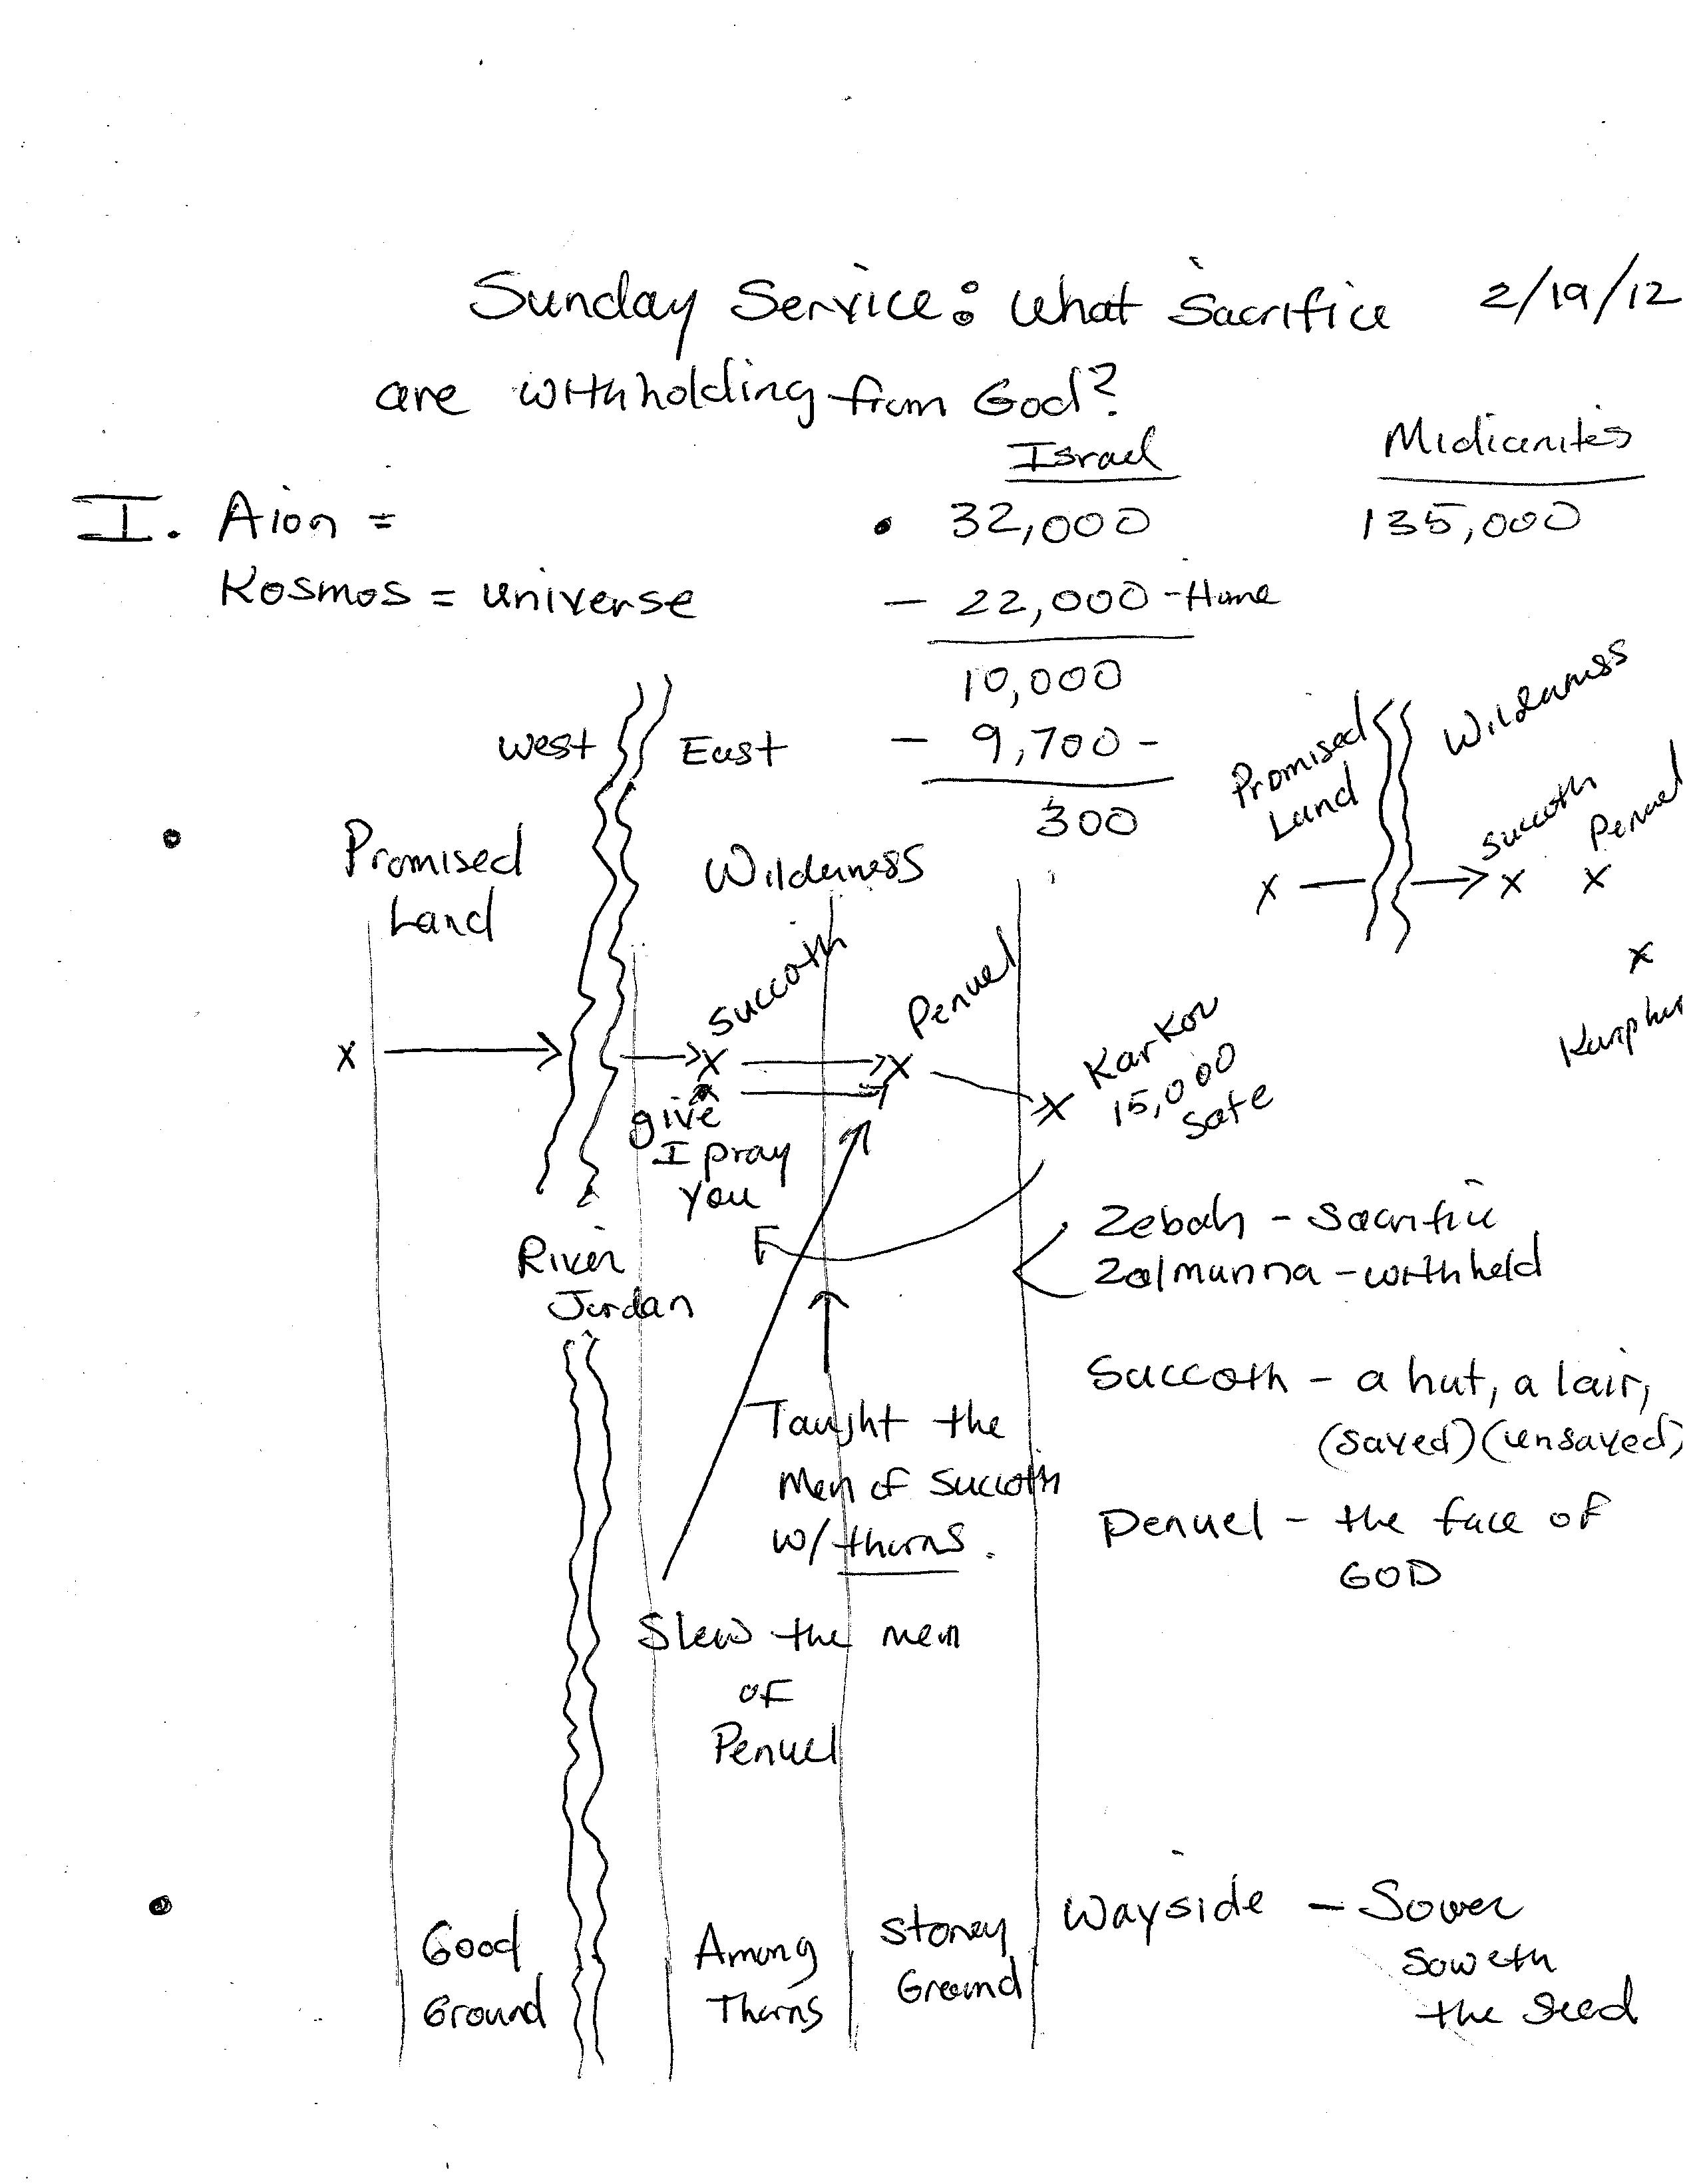 Sunday Service: What Sacrifice 2/19/12
are withholding from God?
Israel Midianites
I. Aion = • 32,000 135,000
Kosmos = universe - 22,000 - Home
10,000
West East - 9,700 -
300
Promised
Land
Wilderness
Succoth
Penuel
X → X X
X
• Promised
Land
Wilderness
Succoth
Penuel
X → → X → X → X
KarKor
15,000
Safe
give
I pray
You
River
Jordan
Zebah - Sacrifice
Zalmunna - withheld
Succoth - a hut, a lair,
(saved) (unsaved)
Penuel - the face of
GOD
Taught the
Men of Succoth
w/ thorns.
Slew the men
of
Penuel
• Good
Ground
Among
Thorns
Stoney
Ground
Wayside - Sower
soweth
the seed